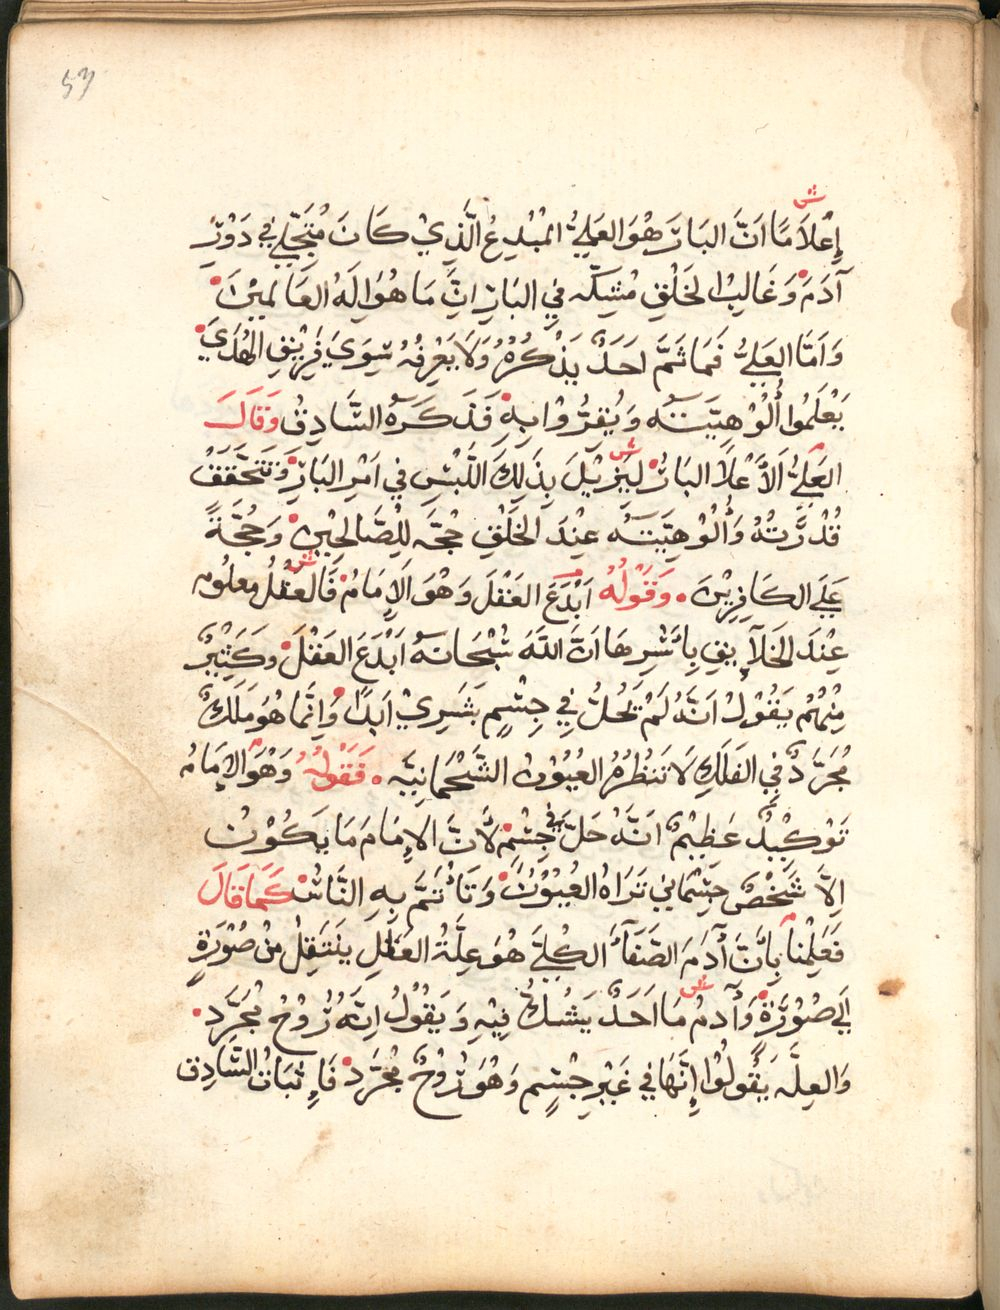 53
ش
إِعْلَامًا اَنَّ البَارَ هُوَ العَلِيُّ المُبْدِعُ الَّذِيْ كَانَ مُتَجَلِّي في دَوْرِ
آدَمَ وَغَالِبُ الخَلْقِ مُشَكِّه فِي البَارِ انَّ مَا هُوَ اِلَهُ العَالَمِيْنَ
وَاَمَّا العَلِيُّ فَمَا ثَمَّ احَدٌ يَذْكُرُهُ وَلَا يَعْرِفُهُ سِوَى فَرِيْقِ الهُدَىْ
يَعْلَمُوا أُلُوْهِيَّتَه وَيُقِرُّوْا بِهِ فَذَكَرَهُ السَّادِقُ وَقَالَ
العَلِيُّ اَلأَعْلَا البَارُ لِيُزِيْلَ بِذَلِكَ اللَّبْسِ في اَمْرِ البَارِ وَتَتَحَقَّقْ
ش
قُدْرَتُهُ وَأُلُوْهِيَّتَهُ عِنْدَ الخَلْقِ حُجَّه لِلصَّالِحِيْنَ وَحُجَّةً
عَلَى الكَافِرِيْنَ وَقَوْلُهُ اَبْدَعَ العَقْلَ وَهُوَ الاِمَامُ فَالعَقْلُ معلوم
ش
عِنْدَ الخَلَآيِقِ بِأَسْرِهَا انَّ اللَّهَ سُبْحَانَهُ اَبْدَعَ العَقْلَ وَكَثِيْرٌ
مِنْهُمْ يَقُوْلُ اَنَّهُ لَمْ يَحُلُّ فِي جِسْمٍ بَشَرِيْ اَبَدًا وَاِنَّمَا هُوَ مَلَكٌ
مُجَرَّدٌ فِي الفَلَكِ لَا تَنْظُرُهُ العُيُوْنُ الشَّحْمَانِيَّه فَقَوْلُهُ وَهُوَ الاِمَامُ
تَوْكِيْدٌ عَظِيْمٌ اَنَّهُ حَلَّ في جِسْمٍ لأَنَّ الاِمَامَ مَا يَكُوْنُ
اِلَّا شَخْصٌ جِسْمَانِي تَرَاهُ العُيُوْنُ وَتَأْتَمَّ بِهِ النَّاسُ كَمَا قَالَ
فَعَلِمْنَا بِأَنَّ أَدَمَ الصَّفَآءَ الكُلِّيْ هُوَ عِلَّةُ العَقْلِ يَنْتَقِلُ مِنْ صُوْرَةٍ
اِلَى صُوْرَةٍ وَآدَمُ مَا اَحَدٌ يَشُكُّ فِيْهِ وَيَقُوْلُ اِنَّهُ رُوْحٌ مُجَرَّد
ش
وَالعِلَّه يَقُوْلُوْا اِنَّهَا في غَيْرِ جِسْمٍ وَهُوَ رُوْحٌ مُجَرَّدٌ فَاِثْبَاتُ السَّادِق